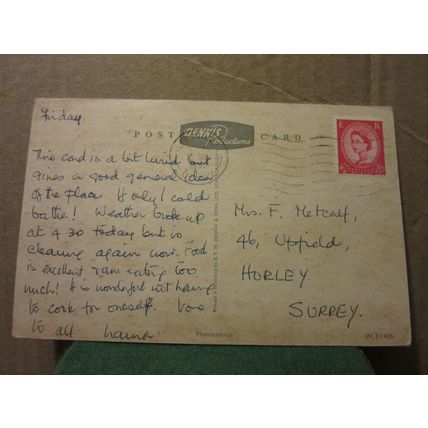 Friday
POST CARD
DENNIS
Productions
This card is a bit lurid but
gives a good general idea
of the place. If only I could
bathe! Weather broke up
at 4 30 today but is
clearing again now. Food
is excellent & am eating too
much! It is wonderful not having
to cook for oneself. Love
to all
E R
Mrs. F. Metcalf,
46, Upfield,
HORLEY.
SURREY.
Photocolour
W.T.1425